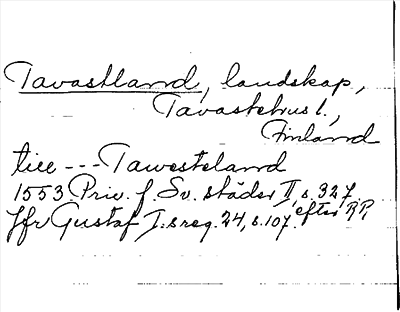 Tavastland, landskap,
Tavastehus l.,
Finland
till --- Tawesteland
1553 Priv. f. Sv. städer II, s. 327, efter RR,
Jfr Gustaf I:s reg. 24, s. 107